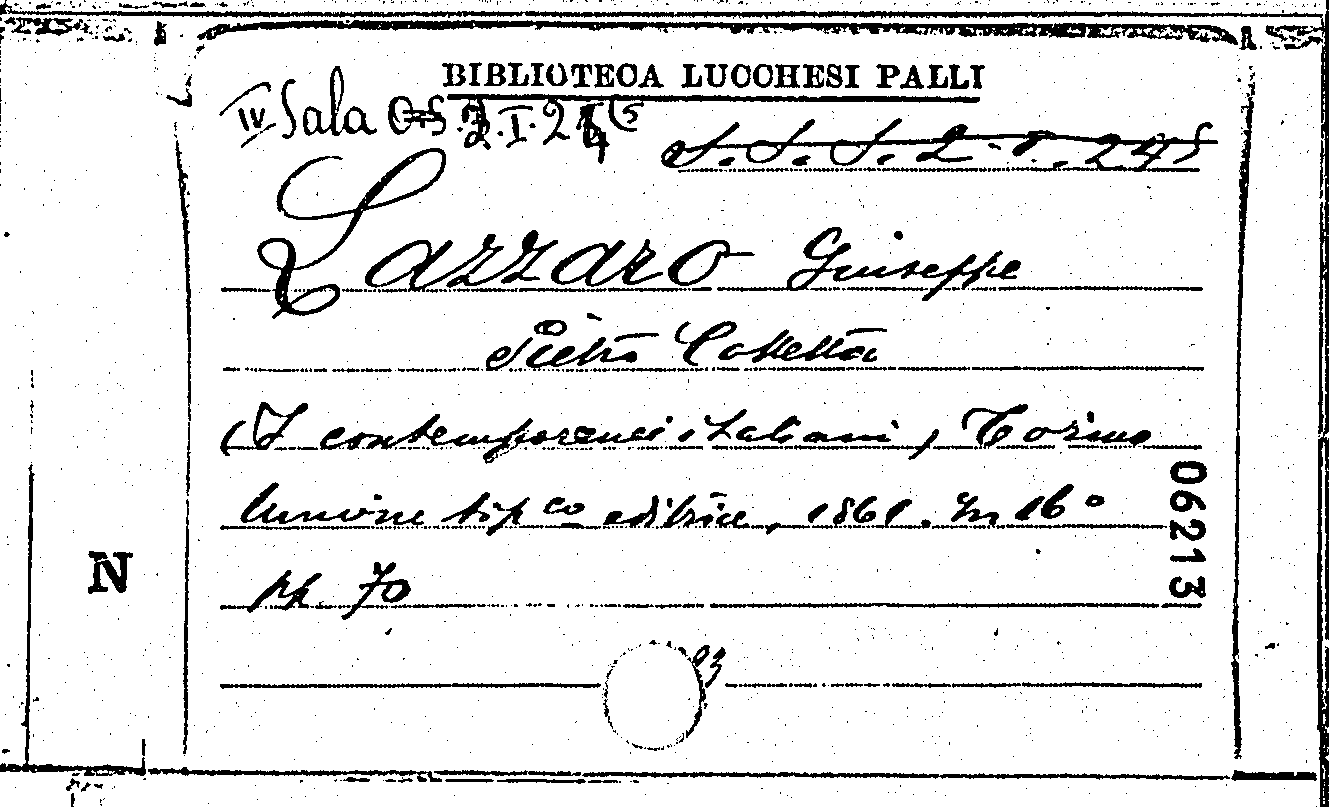 BIBLIOTECA LUCCHESI PALLI
IV Sala
S. S. S. 2-I. 245
Lazzaro Giuseppe
Pietro Colletta
(I contemporanei italiani) Torino
Unione tip.co editrice, 1861. In 16°
pp. 70
06213
N